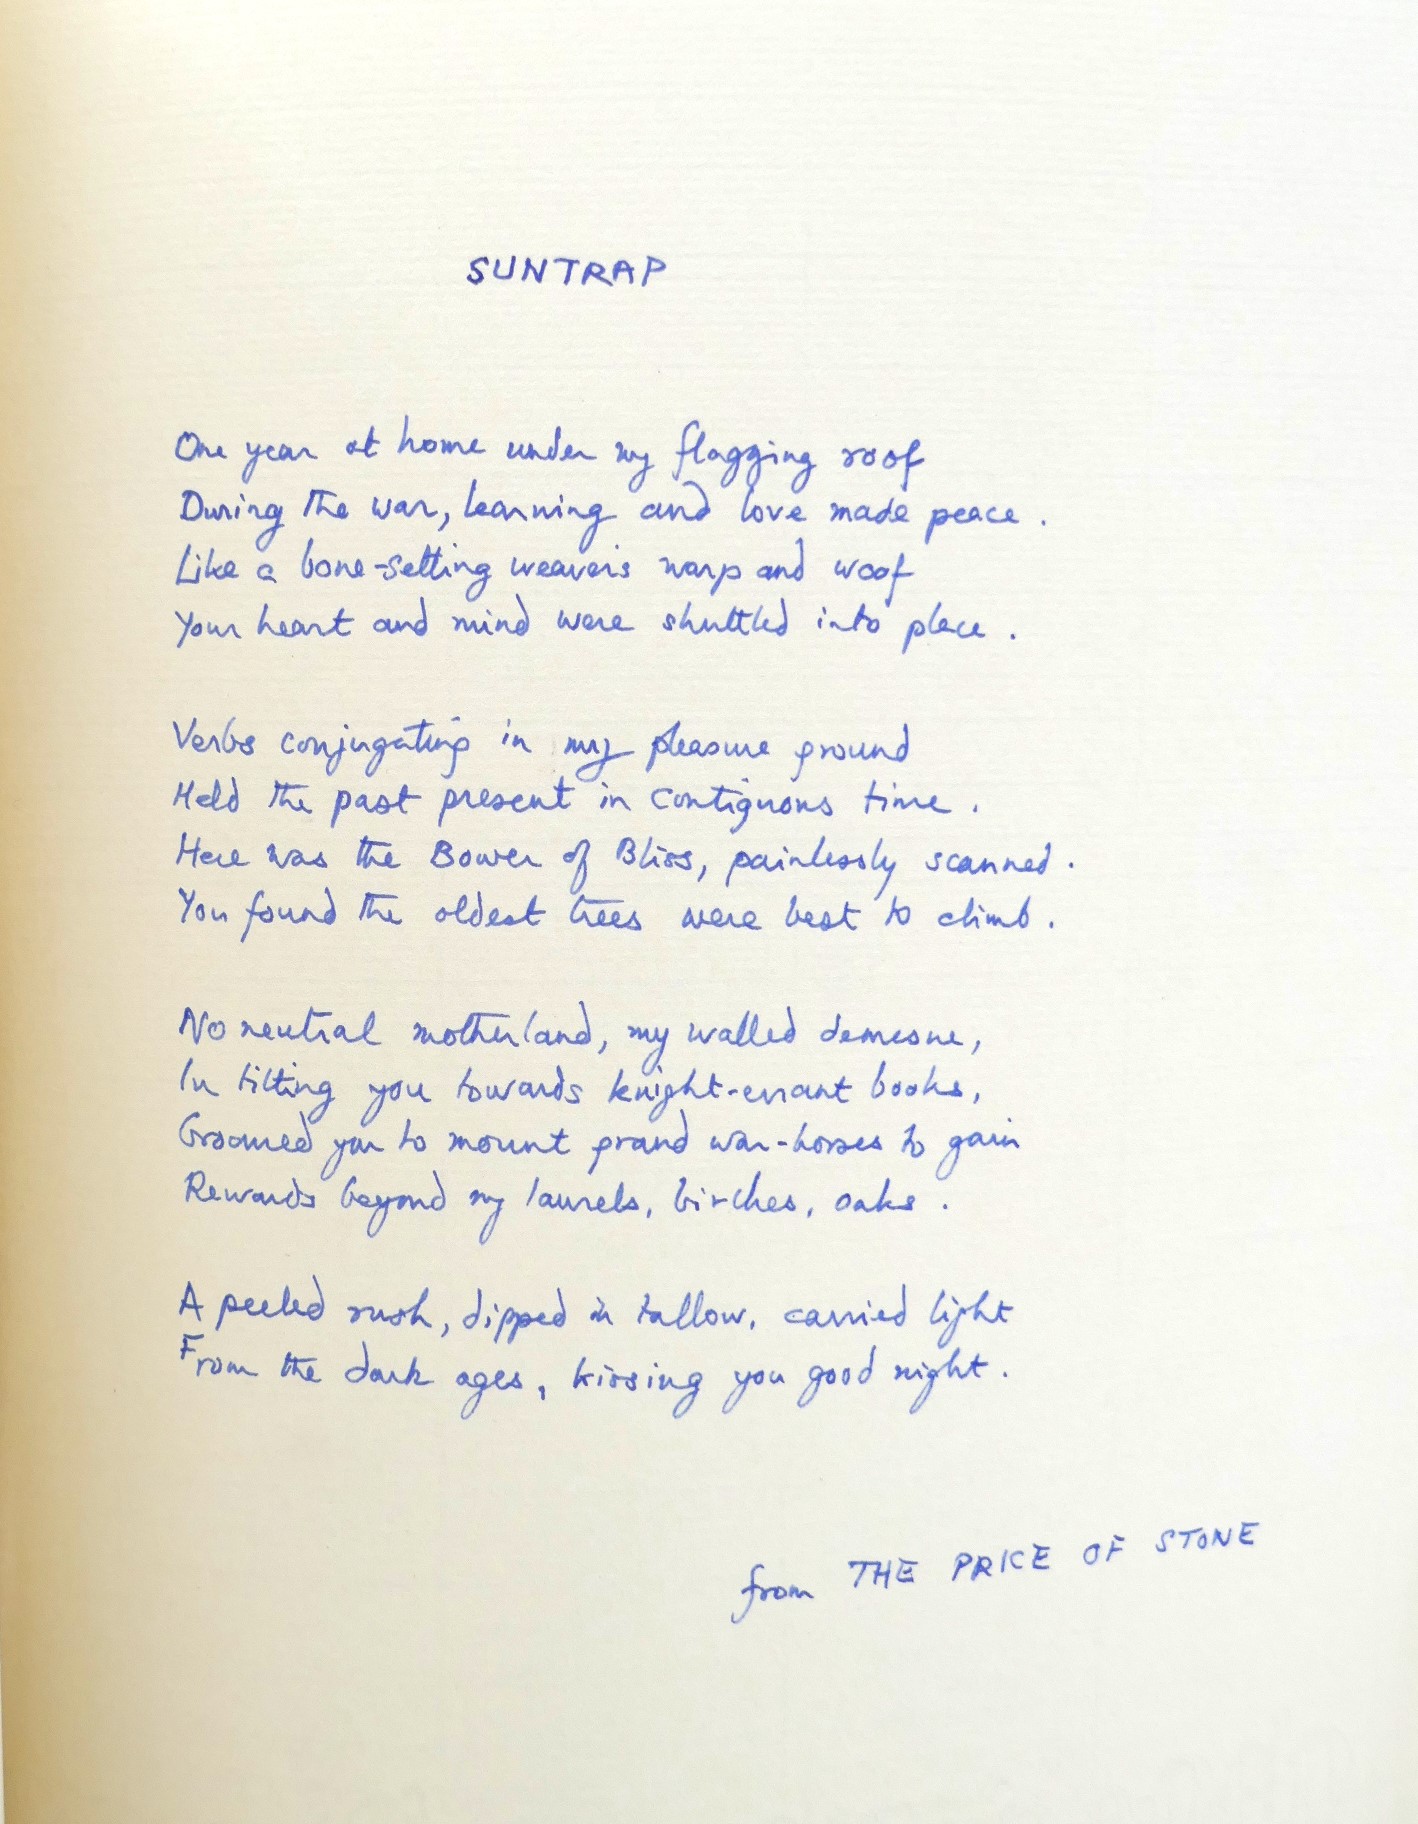 SUNTRAP
One year at home under my flagging roof
During the war, learning and love made peace.
Like a bone-setting weaver's warp and woof
Your heart and mind were shuttled into place.
Verbs conjugating in my pleasure ground
Held the past present in contiguous time.
Here was the Bower of Bliss, painlessly scanned.
You found the oldest trees were best to climb.
No neutral motherland, my walled demesne,
In tilting you towards knight-errant books,
Groomed you to mount grand war-horses to gain
Rewards beyond my laurels, birches, oaks.
A peeled rush, dipped in tallow, carried light
From the dark ages, kissing you good night.
from THE PRICE OF STONE